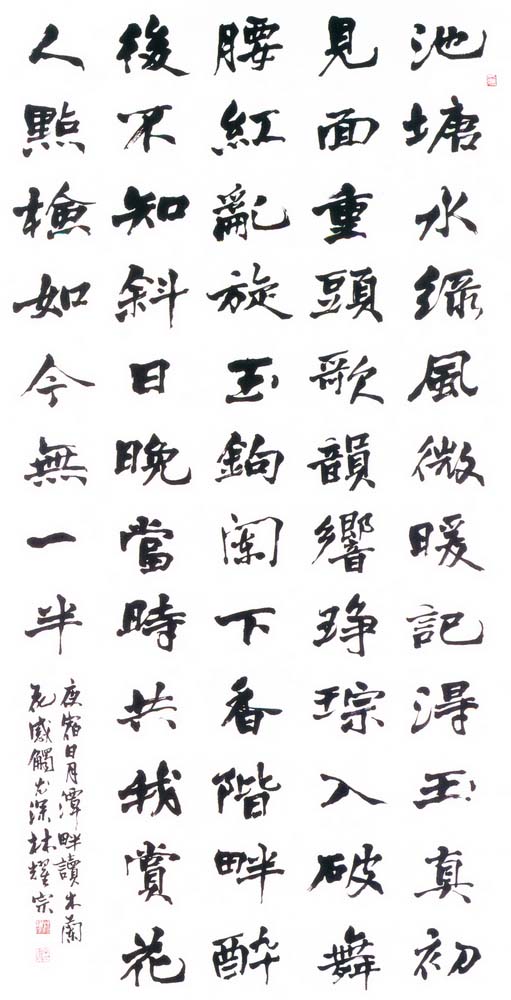 池塘水綠風微暖記得玉真初
見面重頭歌韻響琤琮入破舞
腰紅亂旋玉鉤闌下香階畔醉
後不知斜日晚當時共我賞花
人點檢如今無一半
夜宿日月潭畔讀木蘭
花感觸尤深林耀宗